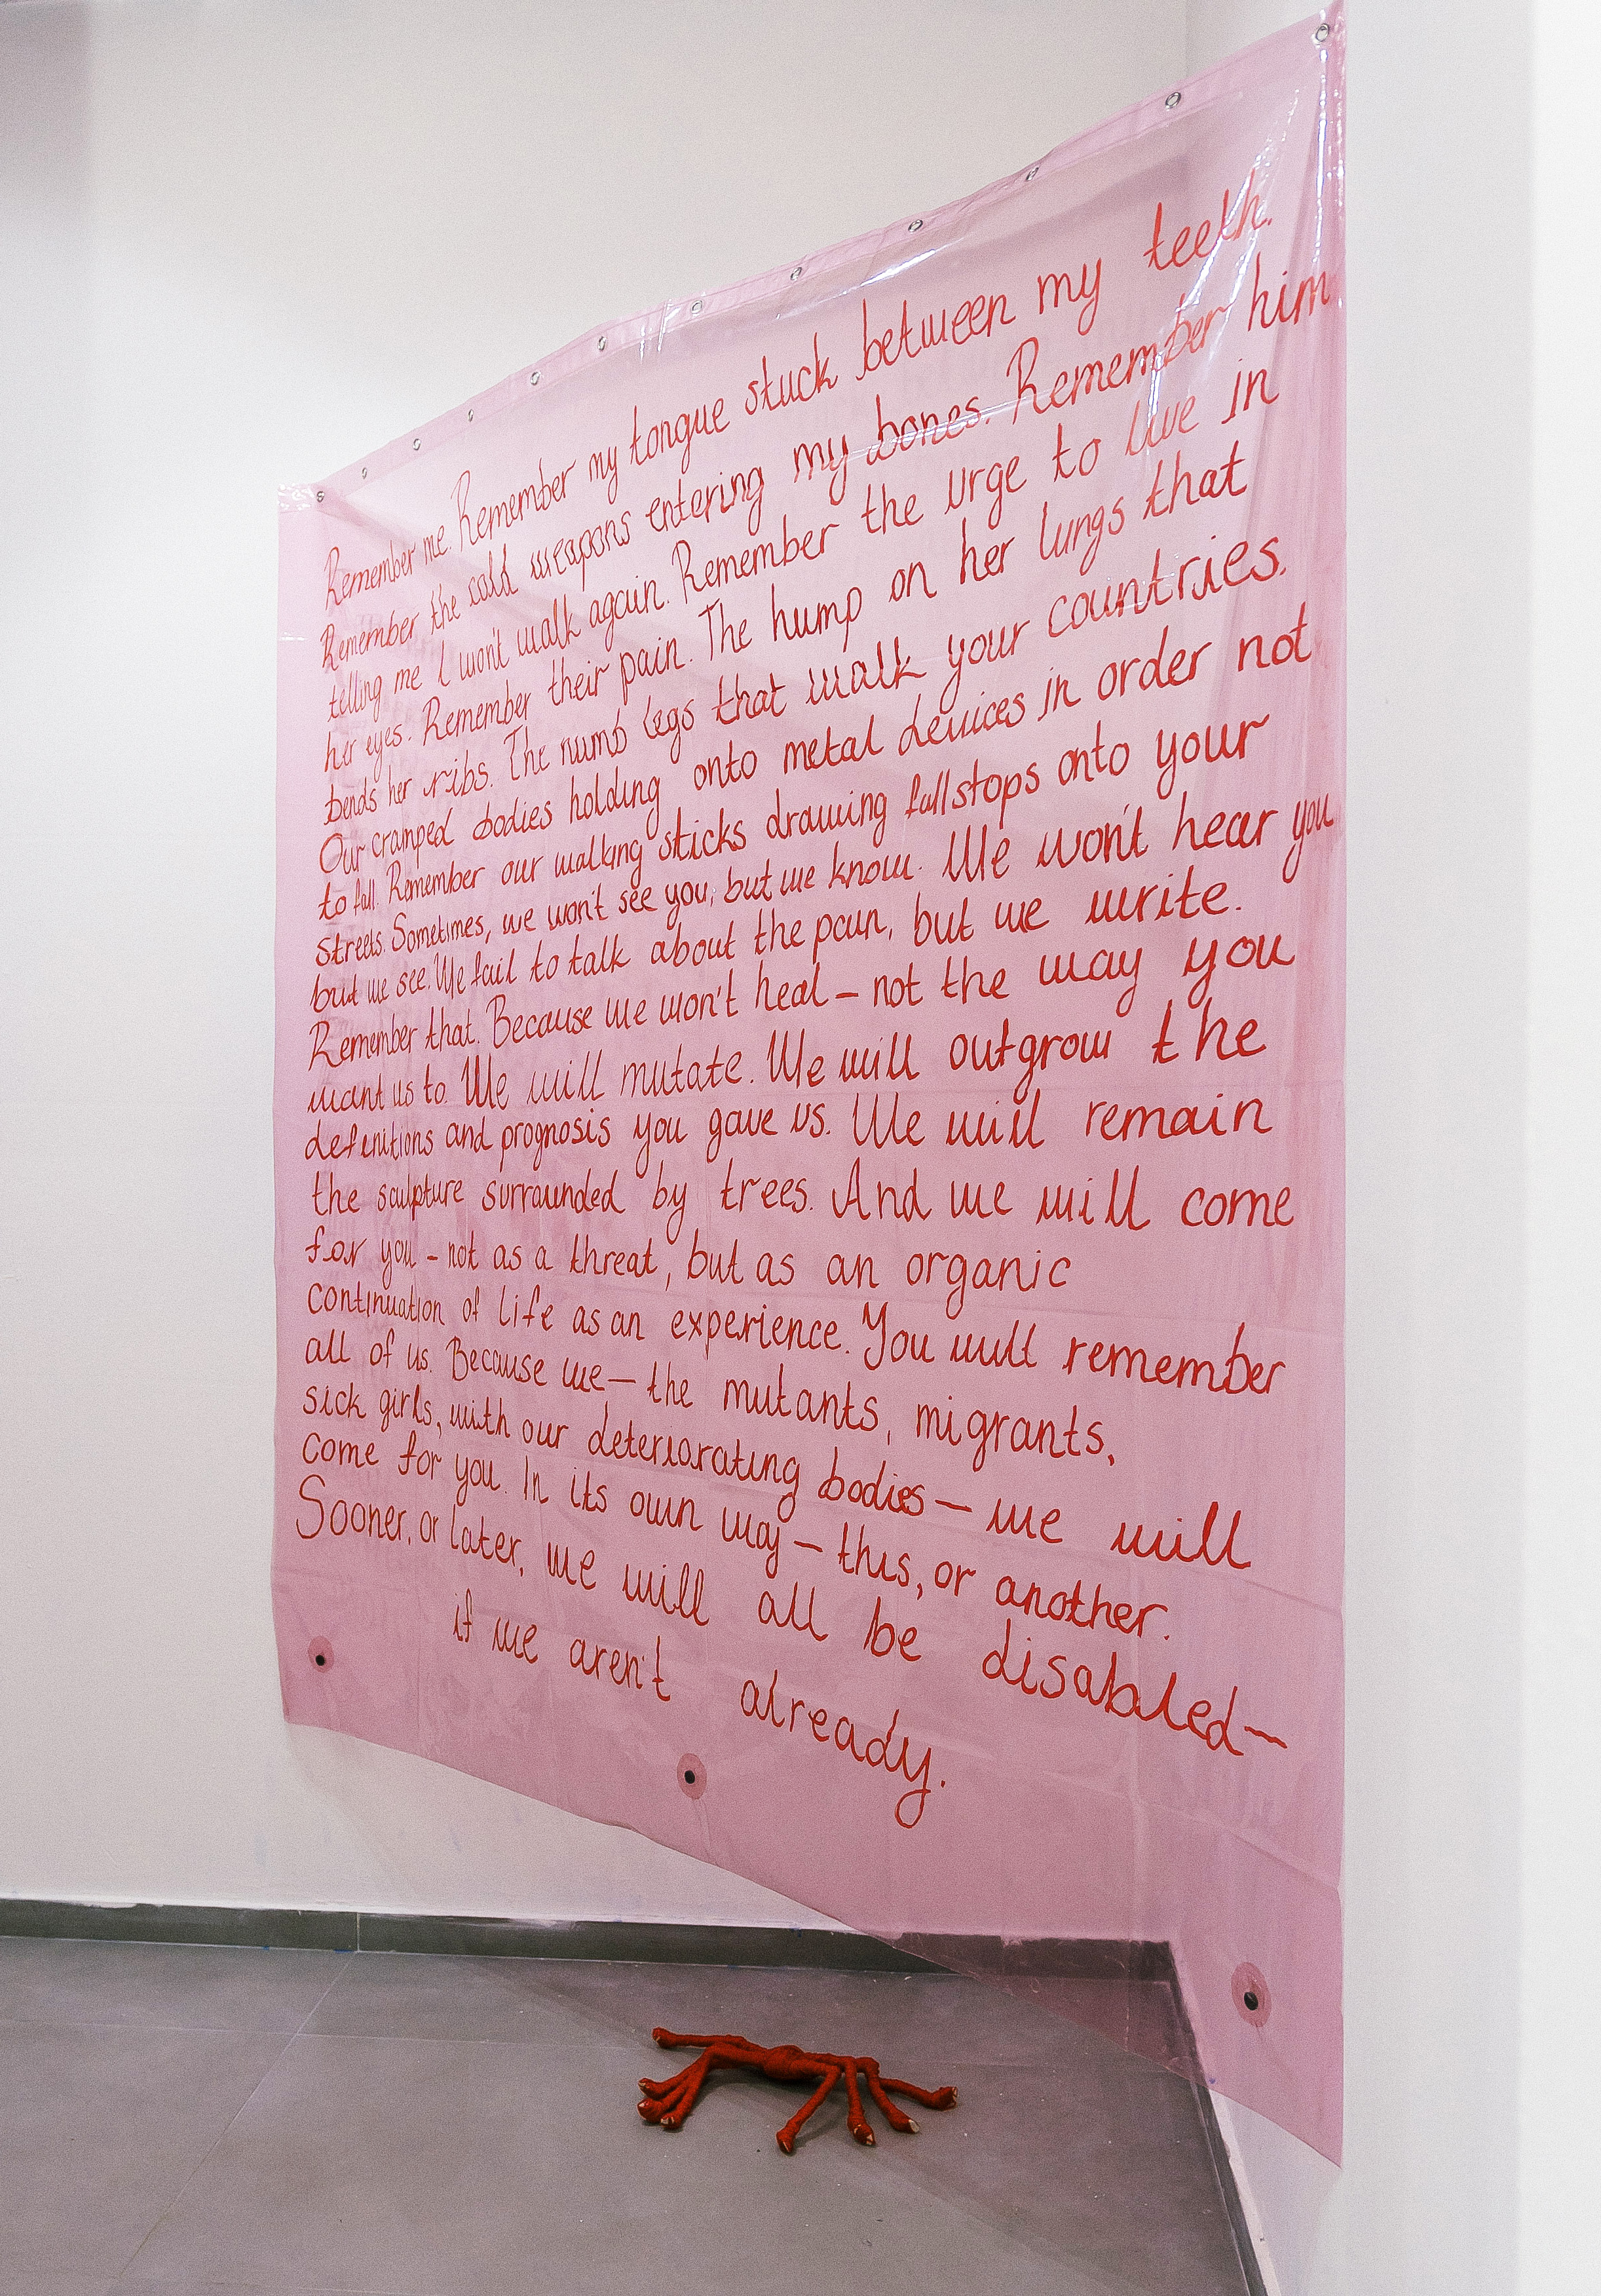 Remember me. Remember my tongue stuck between my teeth.
Remember the cold weapons entering my bones. Remember him
telling me I won't walk again. Remember the urge to live in
her eyes. Remember their pain. The hump on her lungs that
bends her ribs. The numb legs that walk your countries.
Our cramped bodies holding onto metal devices in order not
to fall. Remember our walking sticks drawing fullstops onto your
streets. Sometimes, we won't see you, but we know. We won't hear you
but we see. We fail to talk about the pain, but we write.
Remember that. Because we won't heal – not the way you
want us to. We will mutate. We will outgrow the
definitions and prognosis you gave us. We will remain
the sculpture surrounded by trees. And we will come
for you – not as a threat, but as an organic
continuation of life as an experience. You will remember
all of us. Because we – the mutants, migrants,
sick girls, with our deteriorating bodies – we will
come for you. In its own way – this, or another.
Sooner, or later, we will all be disabled –
if we aren't already.